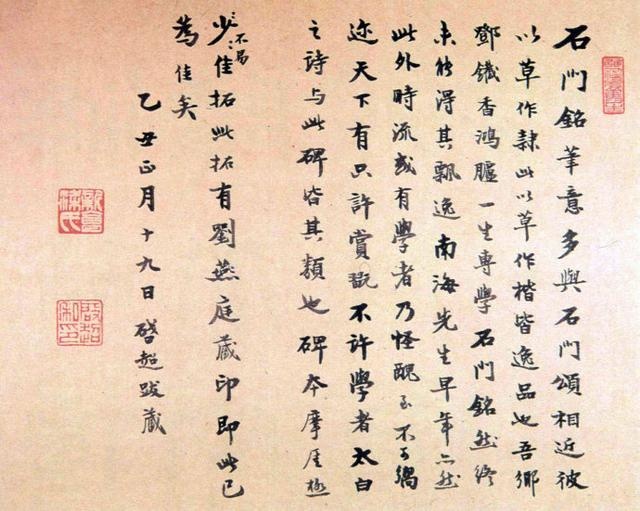 石門銘筆意多與石門頌相近彼
以草作隸此以草作楷皆逸品也吾鄉
鄧鐵香鴻臚一生專學石門銘然終
未能得其飄逸南海先生早年亦然
此外時流或有學者乃怪醜至不可嚮
迩天下有只許賞翫不許學者太白
之詩與此碑皆其類也碑本摩厓極
不易
少佳拓此拓有劉燕庭藏印即此已
為佳矣
乙丑正月十九日啓超跋藏
新會梁氏
啟超私印